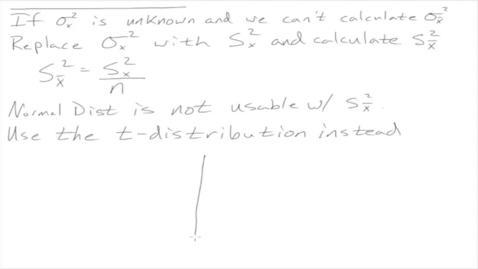 If σₓ² is unknown and we can't calculate σₓ̄²
Replace σₓ² with Sₓ² and calculate Sₓ̄²
Sₓ̄² = Sₓ²/n
Normal Dist is not usable w/ Sₓ̄².
Use the t-distribution instead